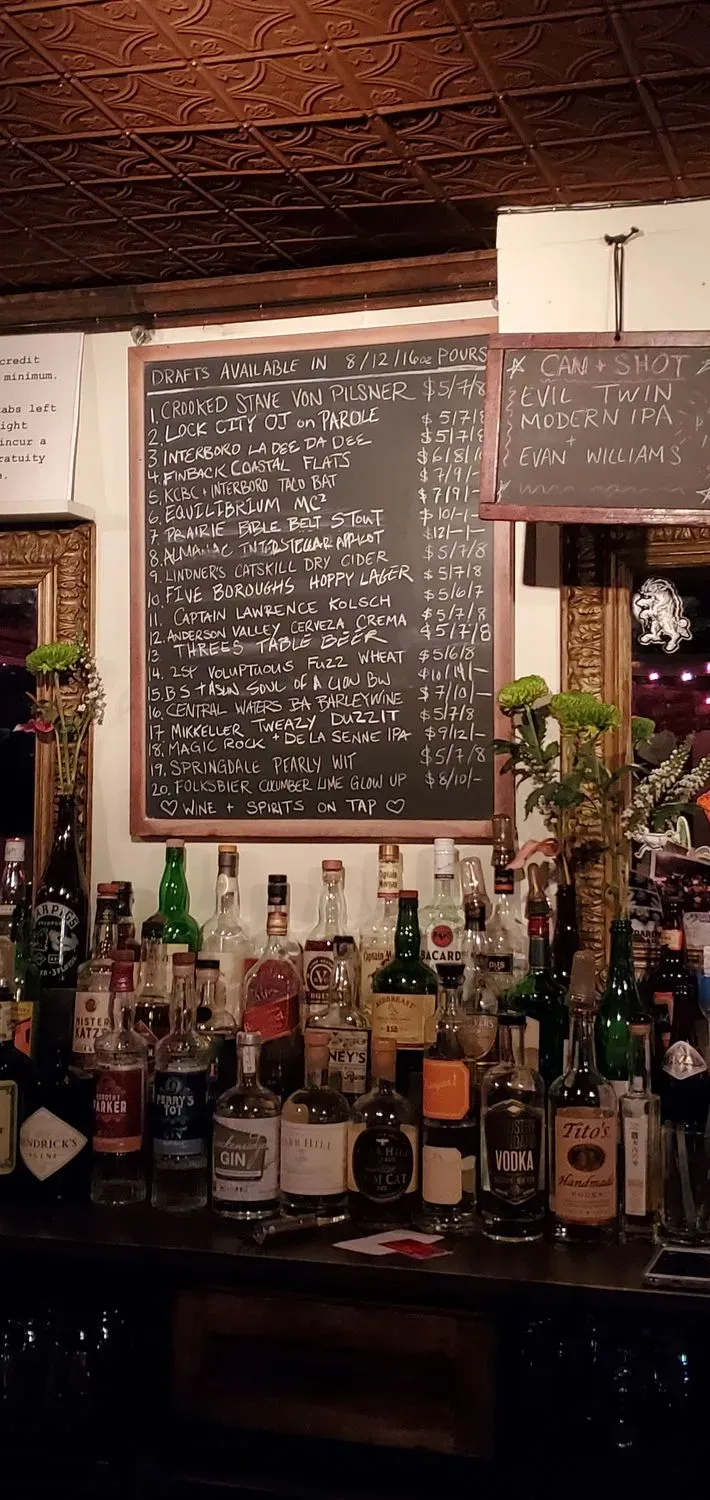 credit
minimum.
tabs left
ight
incur a
ratuity
DRAFTS AVAILABLE IN 8/12/16oz POURS
1. CROOKED STAVE VON PILSNER $5/7/8
2. LOCK CITY OJ on PAROLE $5/7/8
3 INTERBORO LA DEE DA DEE $5/7/8
4. FINBACK COASTAL FLATS $6/8/
5. KCBC + INTERBORO TACO BAT $7/9/-
6. EQUILIBRIUM MC² $7/9/-
7 PRAIRIE BIBLE BELT STOUT $10/-/-
8. ALMANAC INTERSTELLAR APRICOT $12/-/-
9. LINDNER'S CATSKILL DRY CIDER $5/7/8
10. FIVE BOROUGHS HOPPY LAGER $5/6/7
11. CAPTAIN LAWRENCE KOLSCH $5/7/8
12. ANDERSON VALLEY CERVEZA CREMA $5/7/8
13 THREES TABLE BEER $5/6/8
14. 2SP VOLUPTUOUS FUZZ WHEAT $10/14/-
15. BS + ASLIN SOUL OF A LION BW $7/10/-
16. CENTRAL WATERS BA BARLEYWINE $5/7/8
17 MIKKELLER TWEAZY DUZZIT $9/12/-
18. MAGIC ROCK + DE LA SENNE IPA
19. SPRINGDALE PEARLY WIT $5/7/8
20. FOLKSBIER CUCUMBER LIME GLOW UP $8/10/-
♡ WINE + SPIRITS ON TAP ♡
CAN + SHOT
EVIL TWIN
MODERN IPA
+
EVAN WILLIAMS
Captain Morgan
BACARD
MISTER KATZ'S
REDBREAST
12
NEY'S
ENDRICK'S
GIN
DOROTHY PARKER
PERRY'S TOT
GIN
GIN
BARR HILL
TOM CAT
VODKA
Tito's
Handmade
VODKA